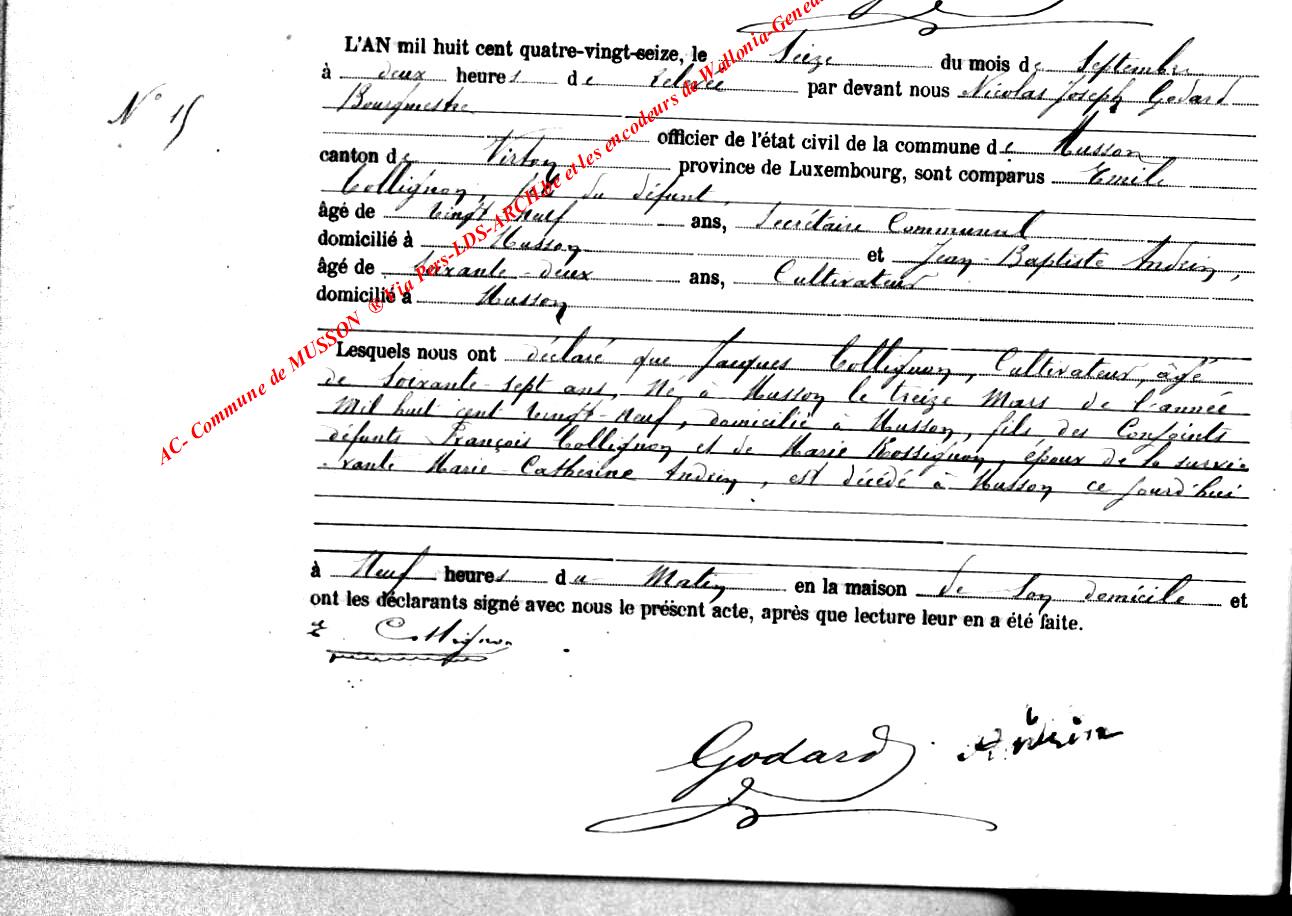 L'AN mil huit cent quatre-vingt-seize, le Seize du mois de Septembre
à deux heures de relevée par devant nous Nicolas Joseph Godard
Bourgmestre
N° 15
officier de l'état civil de la commune de Musson
canton de Virton province de Luxembourg, sont comparus Emile
Collignon, fils du défunt,
âgé de vingt neuf ans, Secrétaire Communal
domicilié à Musson et Jean-Baptiste Andrin,
âgé de soixante-deux ans, Cultivateur
domicilié à Musson
Lesquels nous ont déclaré que Jacques Collignon, Cultivateur, âgé
de soixante-sept ans, né à Musson le treize Mars de l'année
Mil huit cent vingt-neuf, domicilié à Musson, fils des Conjoints
défunts François Collignon et de Marie Rossignon, époux de la survi-
vante Marie-Catherine Andrin, est décédé à Musson ce jourd'hui
à Neuf heures du Matin en la maison de son domicile et
ont les déclarants signé avec nous le présent acte, après que lecture leur en a été faite.
E Collignon
Godard Andrin
AC- Commune de MUSSON ® Via Pers-LDS-ARCH.be et les encodeurs de Wallonia-Genea